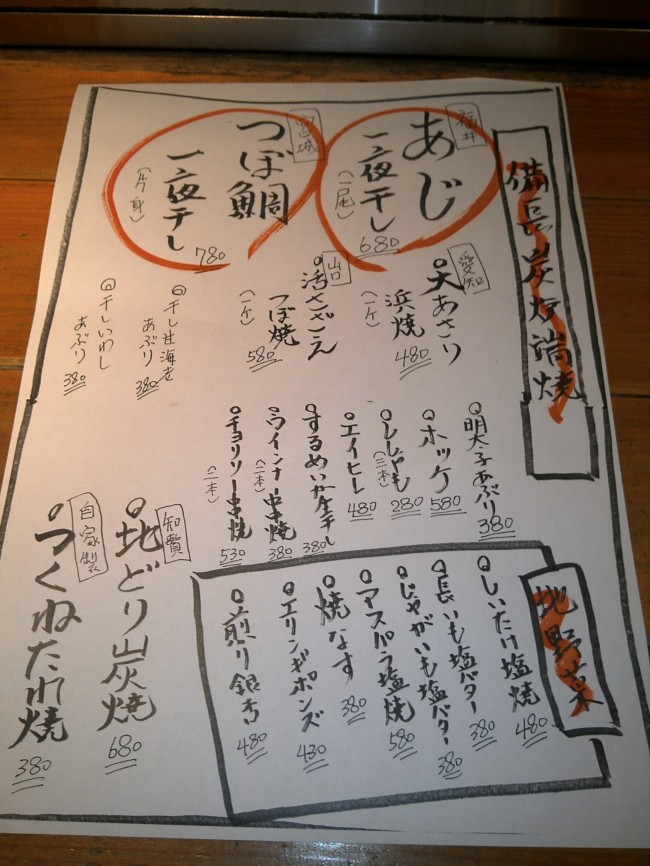 備長炭炉端焼
福井
あじ
一夜干し
(一尾)
680
宮城
つぼ鯛
一夜干し
(片身)
780
愛知
大あさり
浜焼
(一ケ)
480
山口
活さざえ
つぼ焼
(一ケ)
580
干し甘海老
あぶり
380
干しいわし
あぶり
380
明太子あぶり
380
ホッケ
580
ししゃも
(三本)
280
エイヒレ
480
するめいか一夜干し
380
ウインナー串焼
(二本)
380
チョリソー串焼
(二本)
530
地野菜
しいたけ塩焼
480
長いも塩バター
380
じゃがいも塩バター
380
アスパラ塩焼
580
焼なす
380
エリンギポンズ
430
煎り銀杏
480
知賀
地どり炭焼
680
自家製
つくねたれ焼
380